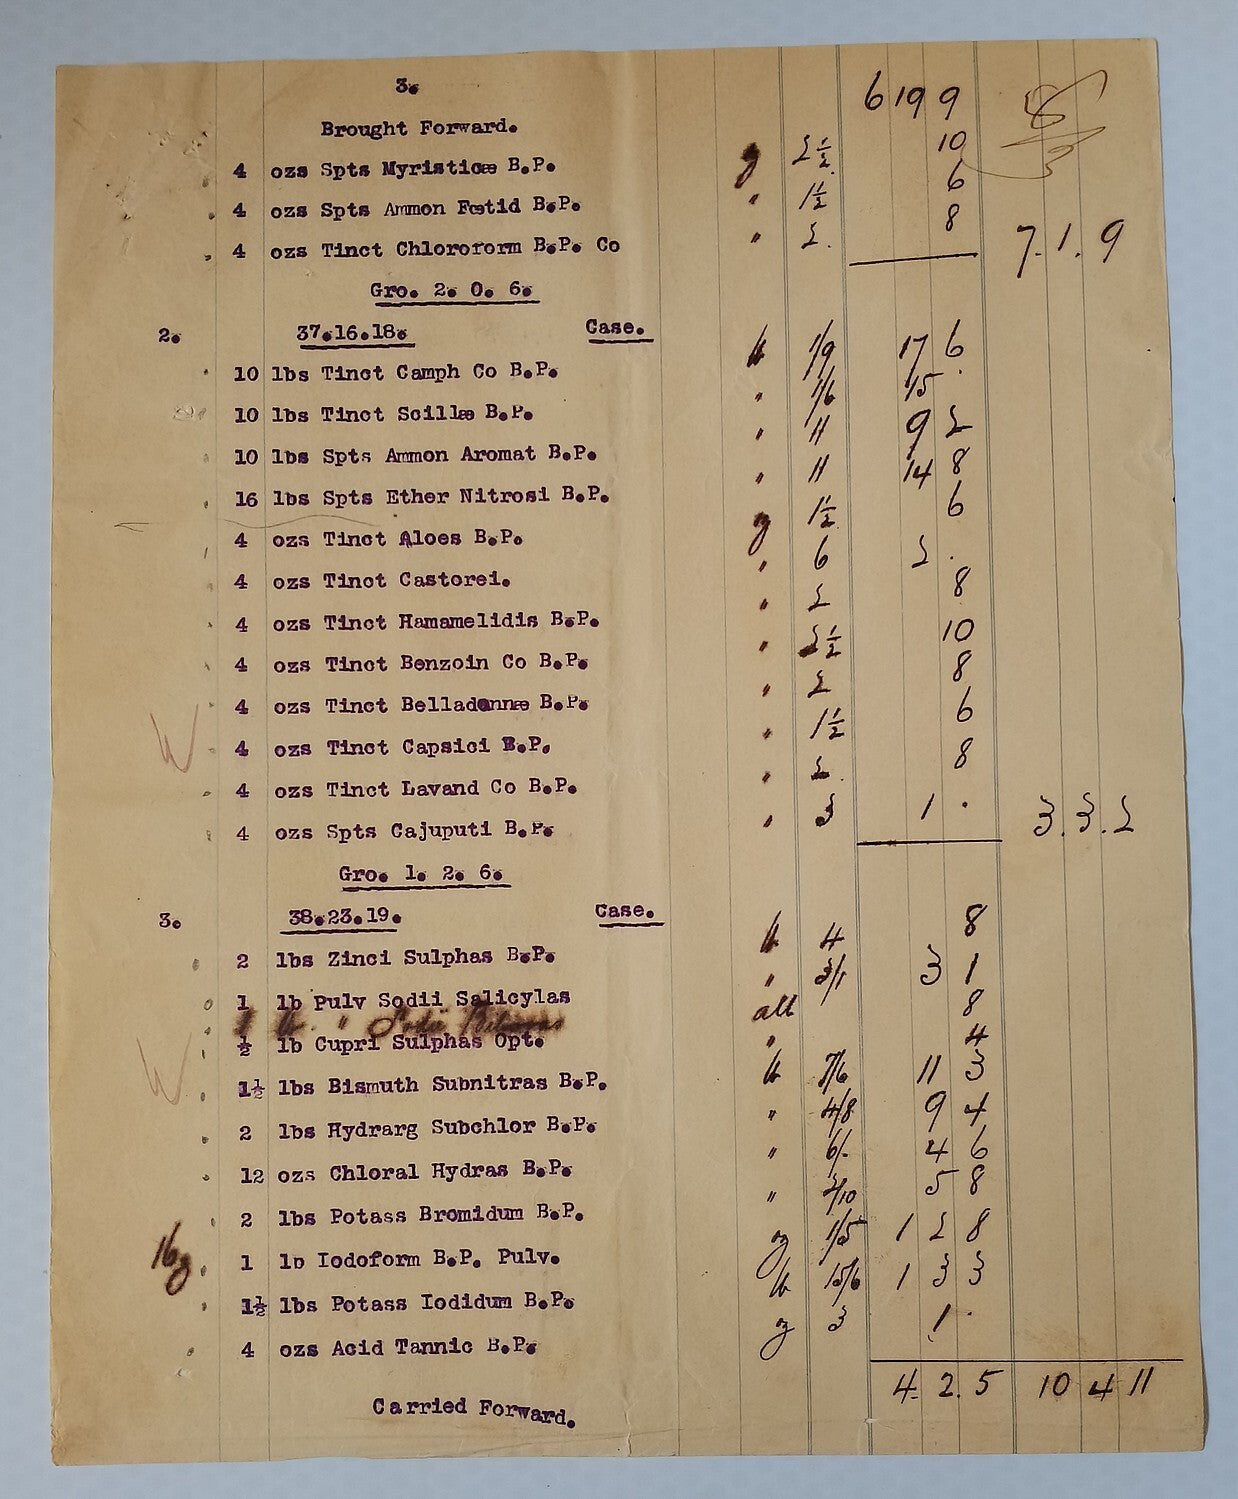 3.
Brought Forward. 6 19 9
4 ozs Spts Myristicæ B.P. 2½ 10
4 ozs Spts Ammon Fœtid B.P. " 1½ 6
4 ozs Tinct Chloroform B.P. Co " 2. 8 7.1.9
Gro. 2. 0. 6.
2. 37.16.18. Case.
10 lbs Tinct Camph Co B.P. lb 1/9 17 6
10 lbs Tinct Scillæ B.P. " 1/6 15
10 lbs Spts Ammon Aromat B.P. " 11 9 2
16 lbs Spts Ether Nitrosi B.P. " 11 14 8
4 ozs Tinct Aloes B.P. oz 1½ 6
4 ozs Tinct Castorei. " 6 2 .
4 ozs Tinct Hamamelidis B.P. " 2 8
4 ozs Tinct Benzoin Co B.P. " 2½ 10
4 ozs Tinct Belladonnæ B.P. " 2 8
4 ozs Tinct Capsici B.P. " 1½ 6
4 ozs Tinct Lavand Co B.P. " 2. 8
4 ozs Spts Cajuputi B.P. " 3 1 . 3.3.2
Gro. 1. 2. 6.
3. 38.23.19. Case.
2 lbs Zinci Sulphas B.P. lb 4 8
1 lb Pulv Sodii Salicylas " 3/1 3 1
" Sodii all 8
½ lb Cupri Sulphas Opt. " 4
1½ lbs Bismuth Subnitras B.P. lb 7/6 11 3
2 lbs Hydrarg Subchlor B.P. " 4/8 9 4
12 ozs Chloral Hydras B.P. " 6/- 4 6
2 lbs Potass Bromidum B.P. " 2/10 5 8
16oz 1 lb Iodoform B.P. Pulv. oz 1/5 1 2 8
1½ lbs Potass Iodidum B.P. lb 15/6 1 3 3
4 ozs Acid Tannic B.P. oz 3 1 .
Carried Forward. 4.2.5 10 4 11